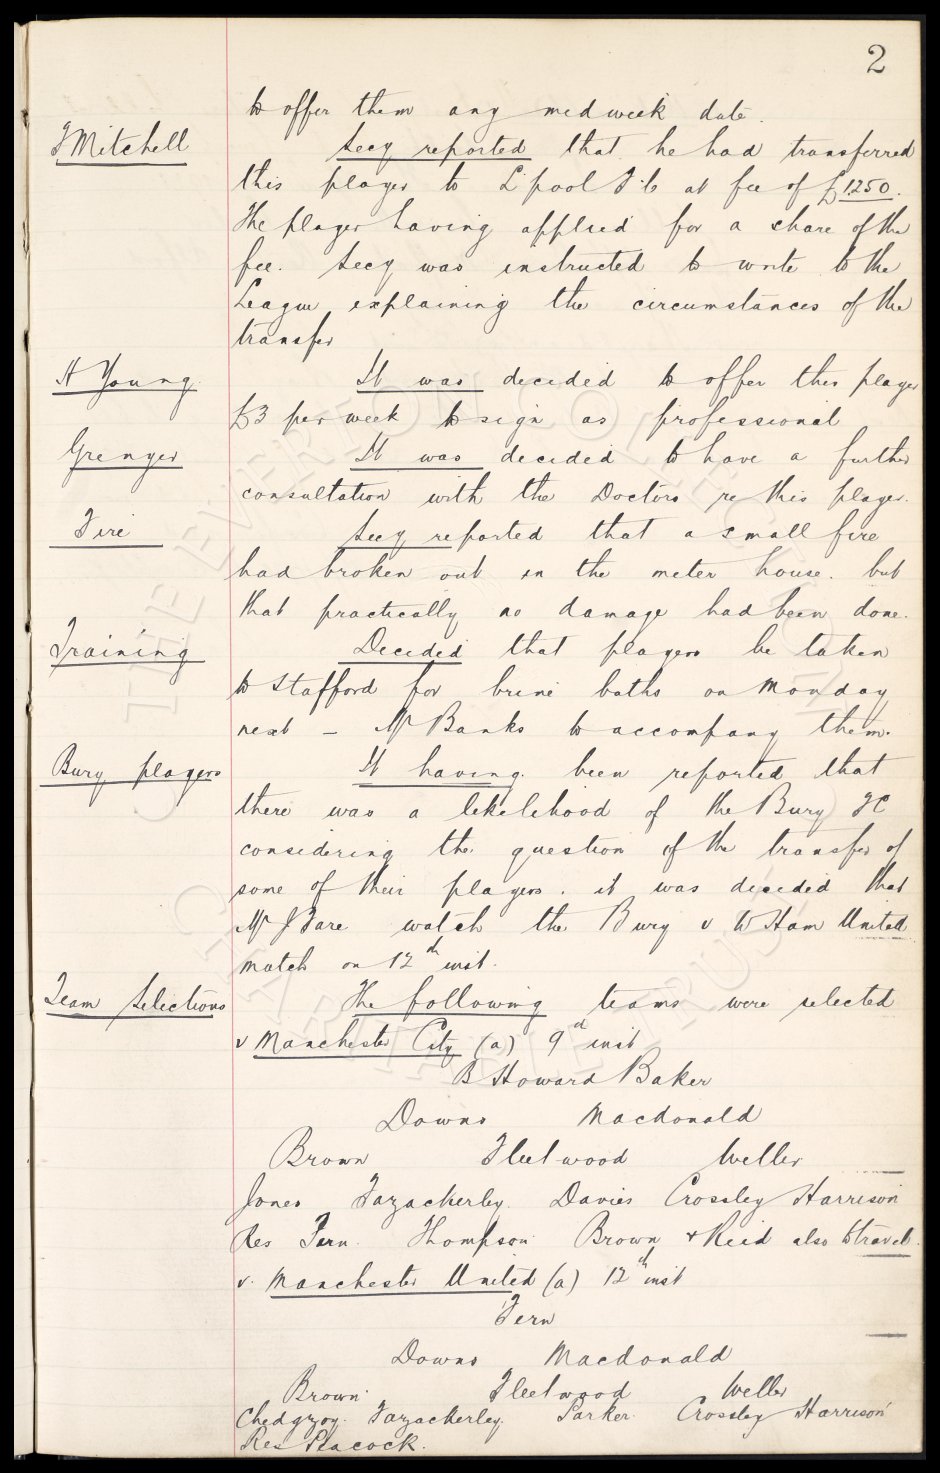 2
to offer them any midweek date.
F Mitchell
Secy reported that he had transferred
this player to L'pool F.C at fee of £1250.
The player having applied for a share of the
fee. Secy was instructed to write to the
League explaining the circumstances of the
transfer
A Young.
It was decided to offer this player
£3 per week to sign as professional
Grenyer
It was decided to have a further
consultation with the Doctors re this player.
Fire
Secy reported that a small fire
had broken out in the meter house. but
that practically no damage had been done.
Training
Decided that players be taken
to Stafford for brine baths on Monday
next – Mr Banks to accompany them.
Bury players
It having been reported that
there was a likelihood of the Bury FC
considering the question of the transfer of
some of their players. it was decided that
Mr J Fare watch the Bury v W Ham United
match on 12th inst.
Team Selections
The following teams were selected
v Manchester City (a) 9th inst
B Howard Baker
Downs Macdonald
Brown Fleetwood Weller
Jones Fazackerley. Davies Crossley Harrison
Res Fern. Thompson Brown & Reid also to travel.
v. Manchester United (a) 12th inst
Fern
Downs Macdonald
Brown. Fleetwood Weller
Chedgzoy. Fazackerley. Parker. Crossley Harrison
Res Peacock.
THE EVERTON COLLECTION
CHARITABLE TRUST